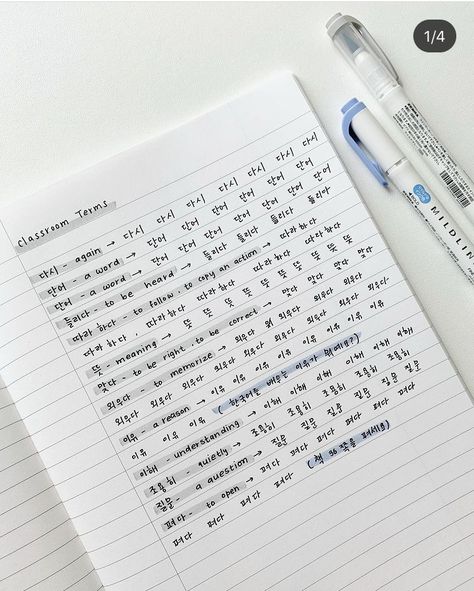 1/4
classroom Terms
다시 - again → 다시 다시 다시 다시 다시 다시 다시
단어 - a word → 단어 단어 단어 단어 단어 단어
단어 - a word → 단어 단어 단어 단어 단어 단어
들리다 - to be heard → 들리다 들리다 들리다 들리다
따라하다 - to follow, to copy an action → 따라하다
따라하다, 따라하다 따라하다 따라하다 따라하다
뜻 - meaning → 뜻 뜻 뜻 뜻 뜻 뜻 뜻 뜻
맞다 - to be right, to be correct → 맞다 맞다 맞다
외우다 - to memorize → 외우다 외우다 외우다
외우다 외우다 외우다 외우다 외우다 외우다 외우다
이유 - a reason → 이유 이유 이유 이유 이유 이유 이유
이유 이유 이유 (한국어를 배우는 이유가 뭐예요?)
이해 - understanding → 이해 이해 이해 이해 이해 이해
조용히 - quietly → 조용히 조용히 조용히 조용히 조용히
질문 - a question → 질문 질문 질문 질문 질문 질문
펴다 - to open → 펴다 펴다 펴다 펴다 펴다 펴다
펴다 펴다 펴다 펴다 (책 36 쪽을 펴세요)
MILDLIN